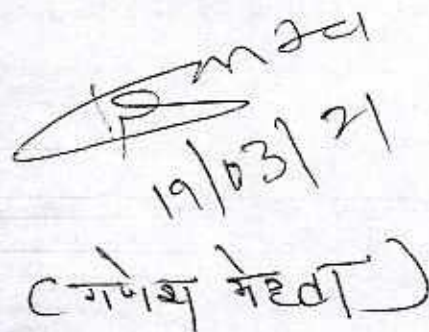 19/03/21
(गणेश मेहता)